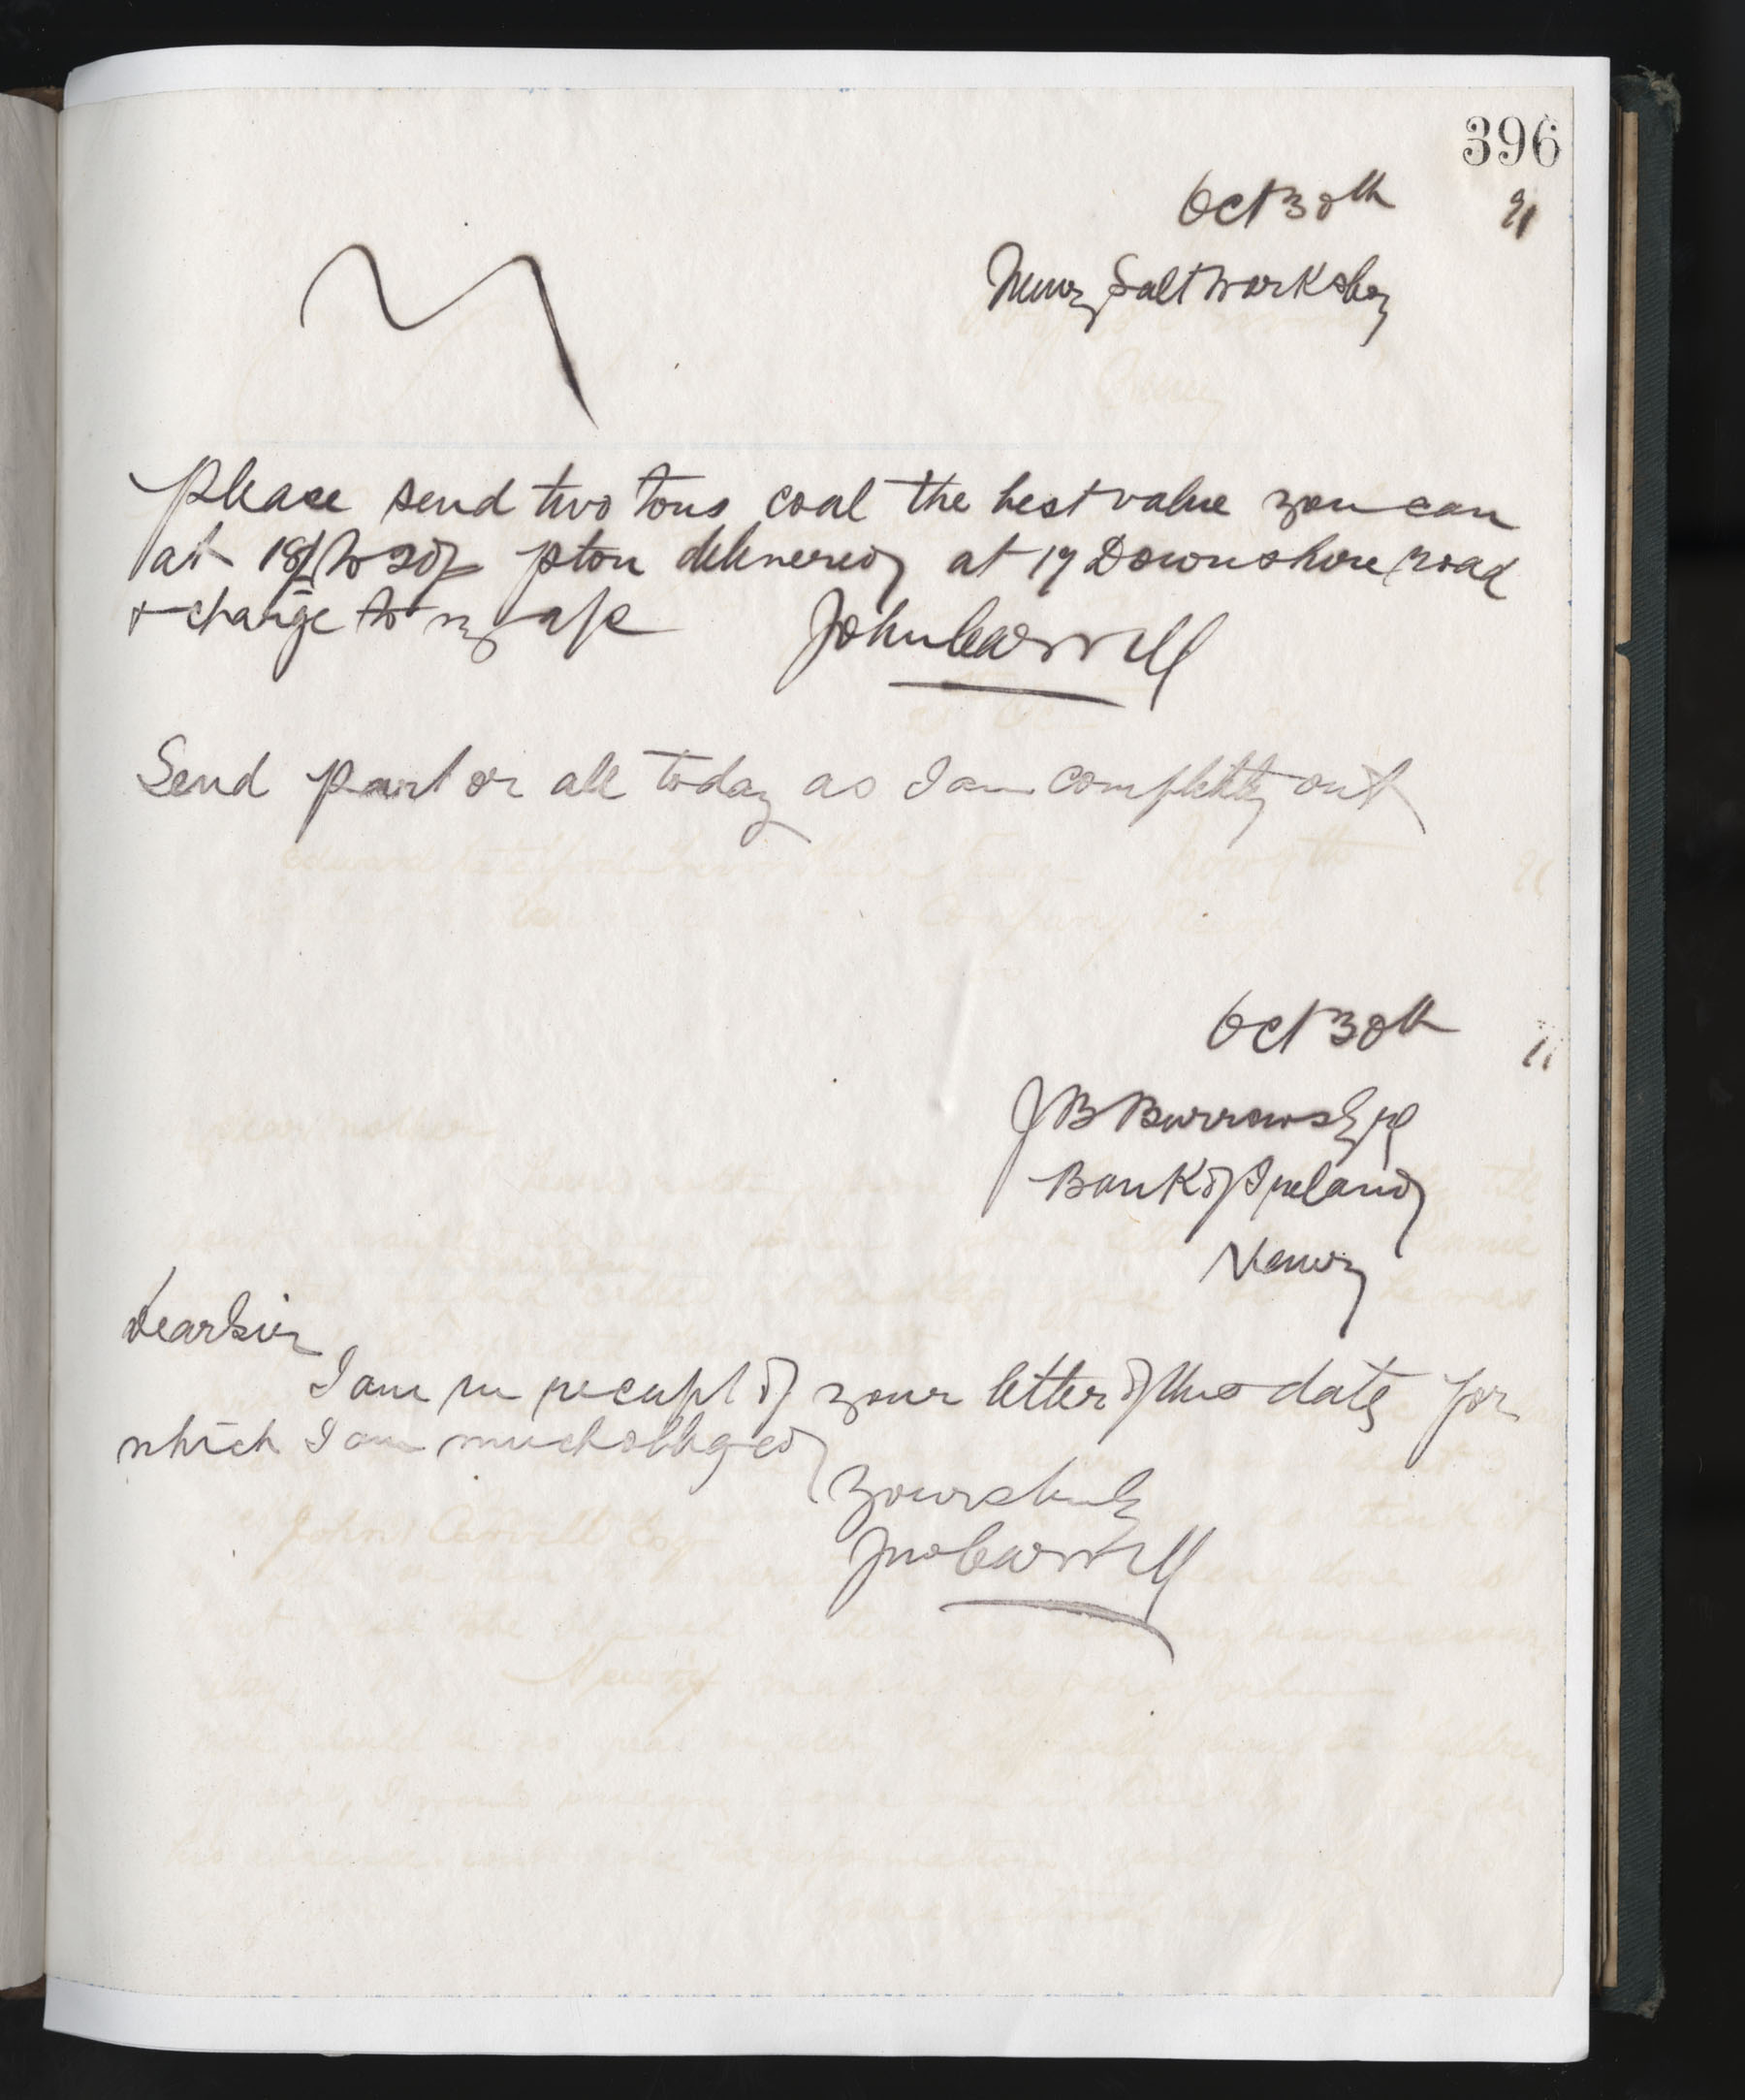 396
Oct 30th 91
Newry Salt Works Coy
Please send two tons coal the best value you can
at 18/ to 20/ p ton delivered at 17 Downshire road
& charge to my a/c John Carvill
Send part or all today as I am completely out
Oct 30th
J B Burrows Esq
Bank of Ireland
Newry
Dear Sir
I am in receipt of your letter of this date for
which I am much obliged
Yours truly
Jno Carvill